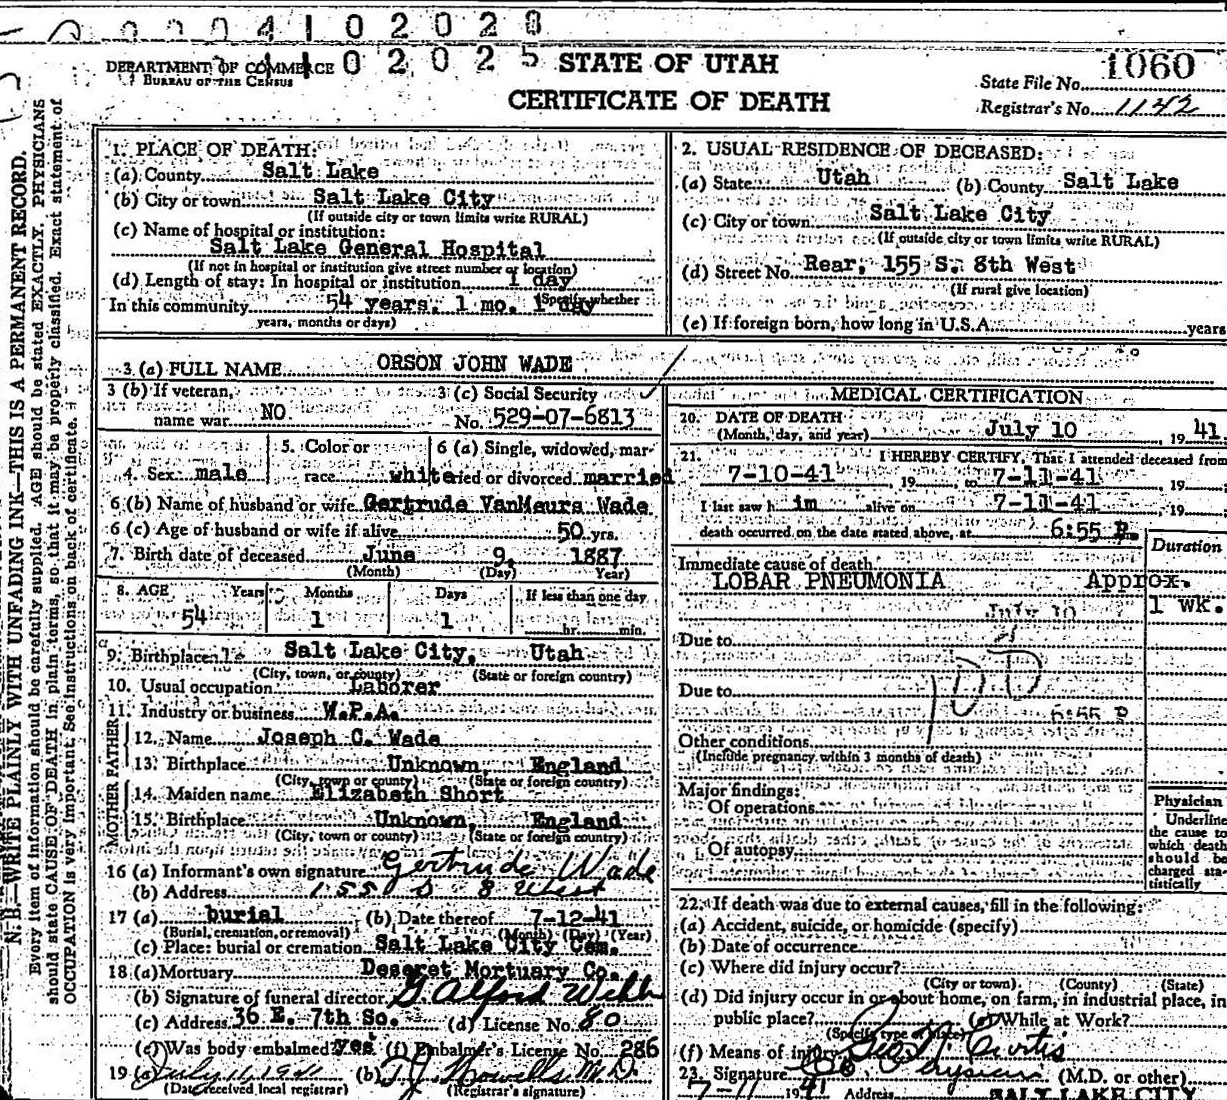 0 0 0 4 1 0 2 0 2 8
1 1 0 2 0 2 5
DEPARTMENT OF COMMERCE
BUREAU OF THE CENSUS
STATE OF UTAH
CERTIFICATE OF DEATH
State File No. 1060
Registrar's No. 1142
N. B.—WRITE PLAINLY WITH UNFADING INK—THIS IS A PERMANENT RECORD.
Every item of information should be carefully supplied. AGE should be stated EXACTLY. PHYSICIANS
should state CAUSE OF DEATH in plain terms, so that it may be properly classified. Exact statement of
OCCUPATION is very important. See instructions on back of certificate.
1. PLACE OF DEATH:
(a) County Salt Lake
(b) City or town Salt Lake City
(If outside city or town limits write RURAL)
(c) Name of hospital or institution:
Salt Lake General Hospital
(If not in hospital or institution give street number or location)
(d) Length of stay: In hospital or institution 1 day
(Specify whether
In this community 54 years, 1 mo. 1 day
years, months or days)
2. USUAL RESIDENCE OF DECEASED:
(a) State Utah (b) County Salt Lake
(c) City or town Salt Lake City
(If outside city or town limits write RURAL)
(d) Street No. Rear, 155 S. 8th West
(If rural give location)
(e) If foreign born, how long in U.S.A. years
3 (a) FULL NAME ORSON JOHN WADE
3 (b) If veteran, name war NO
3 (c) Social Security No. 529-07-6813
4. Sex male
5. Color or race white
6 (a) Single, widowed, married or divorced married
6 (b) Name of husband or wife Gertrude VanMeurs Wade
6 (c) Age of husband or wife if alive 50 yrs.
7. Birth date of deceased June 9, 1887
(Month) (Day) Year)
8. AGE Years Months Days If less than one day
54 1 1 hr. min.
9. Birthplace Salt Lake City, Utah
(City, town, or county) (State or foreign country)
10. Usual occupation Laborer
11. Industry or business W.P.A.
FATHER
12. Name Joseph C. Wade
13. Birthplace Unknown, England
(City, town or county) (State or foreign country)
MOTHER
14. Maiden name Elizabeth Short
15. Birthplace Unknown, England
(City, town or county) (State or foreign country)
16 (a) Informant's own signature Gertrude Wade
(b) Address 155 S 8 West
17 (a) burial (b) Date thereof 7-12-41
(Burial, cremation, or removal) (Month) (Day) (Year)
(c) Place: burial or cremation Salt Lake City Cem.
18 (a) Mortuary Deseret Mortuary Co.
(b) Signature of funeral director
(c) Address 36 E. 7th So. (d) License No. 80
(e) Was body embalmed? yes (f) Embalmer's License No. 286
19 (a) July 11, 1941 (b) T J Howells M.D.
(Date received local registrar) (Registrar's signature)
MEDICAL CERTIFICATION
20. DATE OF DEATH
(Month, day, and year) July 10, 19 41
21. I HEREBY CERTIFY, That I attended deceased from
7-10-41, 19 to 7-11-41, 19
I last saw h im alive on 7-11-41, 19
death occurred on the date stated above, at 6:55 P. m.
Duration
Immediate cause of death
LOBAR PNEUMONIA Approx.
1 wk.
July 10
Due to
Due to
6:55 P
Other conditions
(Include pregnancy within 3 months of death)
Major findings:
Of operations
Of autopsy
Physician
Underline
the cause to
which death
should be
charged sta-
tistically
22. If death was due to external causes, fill in the following:
(a) Accident, suicide, or homicide (specify)
(b) Date of occurrence
(c) Where did injury occur?
(City or town) (County) (State)
(d) Did injury occur in or about home, on farm, in industrial place, in
public place? (e) While at Work?
(Specify type of place)
(f) Means of injury
23. Signature Curtis (M.D. or other)
Co Physician
7-11 19 41 Address SALT LAKE CITY